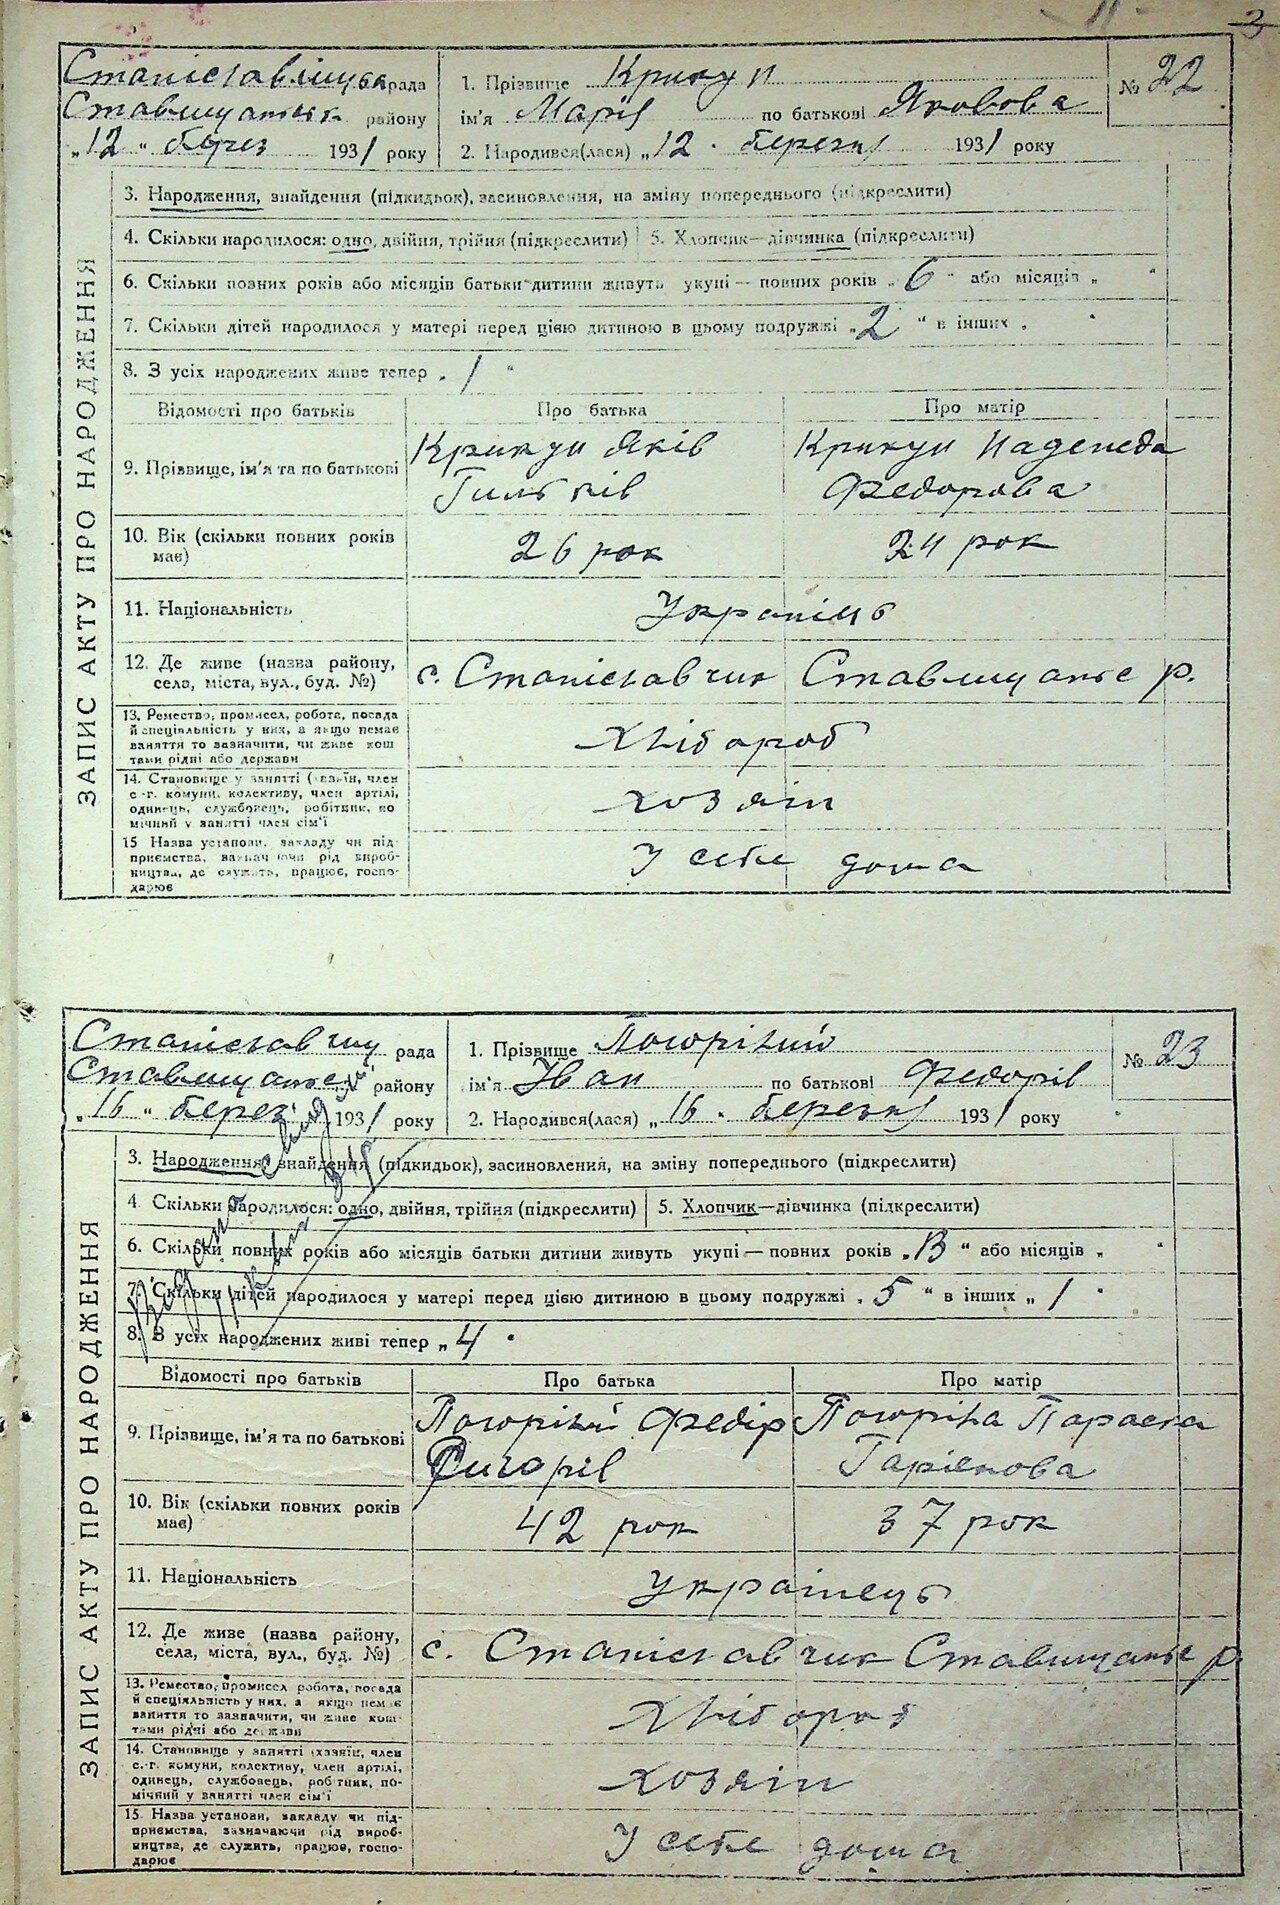 11
3
Станіславчицька рада
Ставищанськ району
„12" берез 1931 року
1. Прізвище Крикун
ім'я Марія по батькові Яковова
№ 22
2. Народився(лася) „12 березня 1931 року
ЗАПИС АКТУ ПРО НАРОДЖЕННЯ
3. Народження, знайдення (підкидьок), засиновлення, на зміну попереднього (підкреслити)
4. Скільки народилося: одно, двійня, трійня (підкреслити) 5. Хлопчик—дівчинка (підкреслити)
6. Скільки повних років або місяців батьки дитини живуть укупі — повних років „6" або місяців „ "
7. Скільки дітей народилося у матері перед цією дитиною в цьому подружжі „2" в інших „ "
8. З усіх народжених живе тепер „1"
Відомості про батьків Про батька Про матір
9. Прізвище, ім'я та по батькові
Крикун Яків
Крикун Надежда
Федорова
10. Вік (скільки повних років має)
26 рок 24 рок
11. Національність
12. Де живе (назва району, села, міста, вул., буд. №)
с. Станіславчик Ставищанське р.
13. Ремество, промисел, робота, посада
й спеціяльність у них, а якщо немає
заняття то зазначити, чи живе кош
тами рідні або держави
Хлібороб
14. Становище у занятті (хазяїн, член
с.-г. комуни, колективу, член артілі,
одинець, службовець, робітник, по
мічний у занятті член сім'ї
хозяїн
15 Назва установи, закладу чи під-
приємства, зазначаючи рід вироб-
ництва, де служить, працює, госпо-
дарює
У себе дома
Станіславчиц рада
Ставищанськ району
„16" берез 1931 року
1. Прізвище Погорілий
ім'я Іван по батькові Федорів
№ 23
2. Народився(лася) „16 березня 1931 року
ЗАПИС АКТУ ПРО НАРОДЖЕННЯ
3. Народження, знайдення (підкидьок), засиновлення, на зміну попереднього (підкреслити)
4. Скільки народилося: одно, двійня, трійня (підкреслити) 5. Хлопчик—дівчинка (підкреслити)
6. Скільки повних років або місяців батьки дитини живуть укупі — повних років „13" або місяців „ "
7. Скільки дітей народилося у матері перед цією дитиною в цьому подружжі „5" в інших „1"
8. З усіх народжених живі тепер „4"
Відомості про батьків Про батька Про матір
9. Прізвище, ім'я та по батькові
Погорілий Федір
Погоріла Параска
10. Вік (скільки повних років має)
42 рок 37 рок
11. Національність
Українець
12. Де живе (назва району, села, міста, вул., буд. №)
с. Станіславчик Ставищанське р.
13. Ремество, промисел робота, посада
й спеціяльність у них, а якщо немає
заняття то зазначити, чи живе кош-
тами рідні або держави
Хлібороб
14. Становище у занятті (хазяїн, член
с.-г. комуни, колективу, член артілі,
одинець, службовець, робітник, по-
мічний у занятті член сім'ї
хозяїн
15. Назва установи, закладу чи під-
приємства, зазначаючи рід вироб-
ництва, де служить, працює, госпо-
дарює
У себе дома